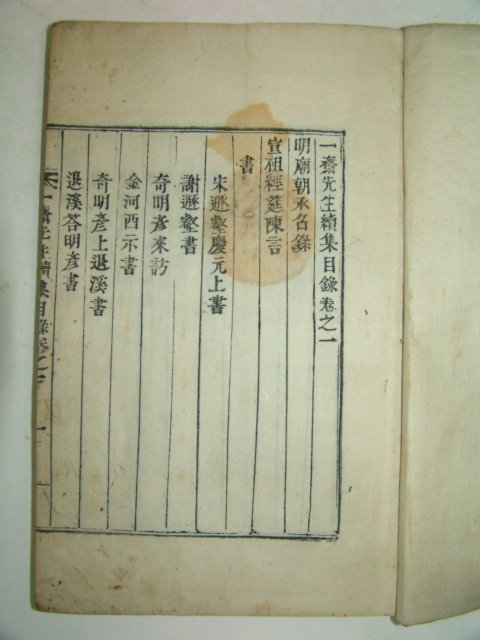 一齋先生續集目錄卷之一
明廟朝承召錄
宣祖經筵陳言
書
宋遯壑慶元上書
謝遯壑書
奇明彥來訪
金河西示書
奇明彥上退溪書
退溪答明彥書
一齋先生續集目錄卷之一